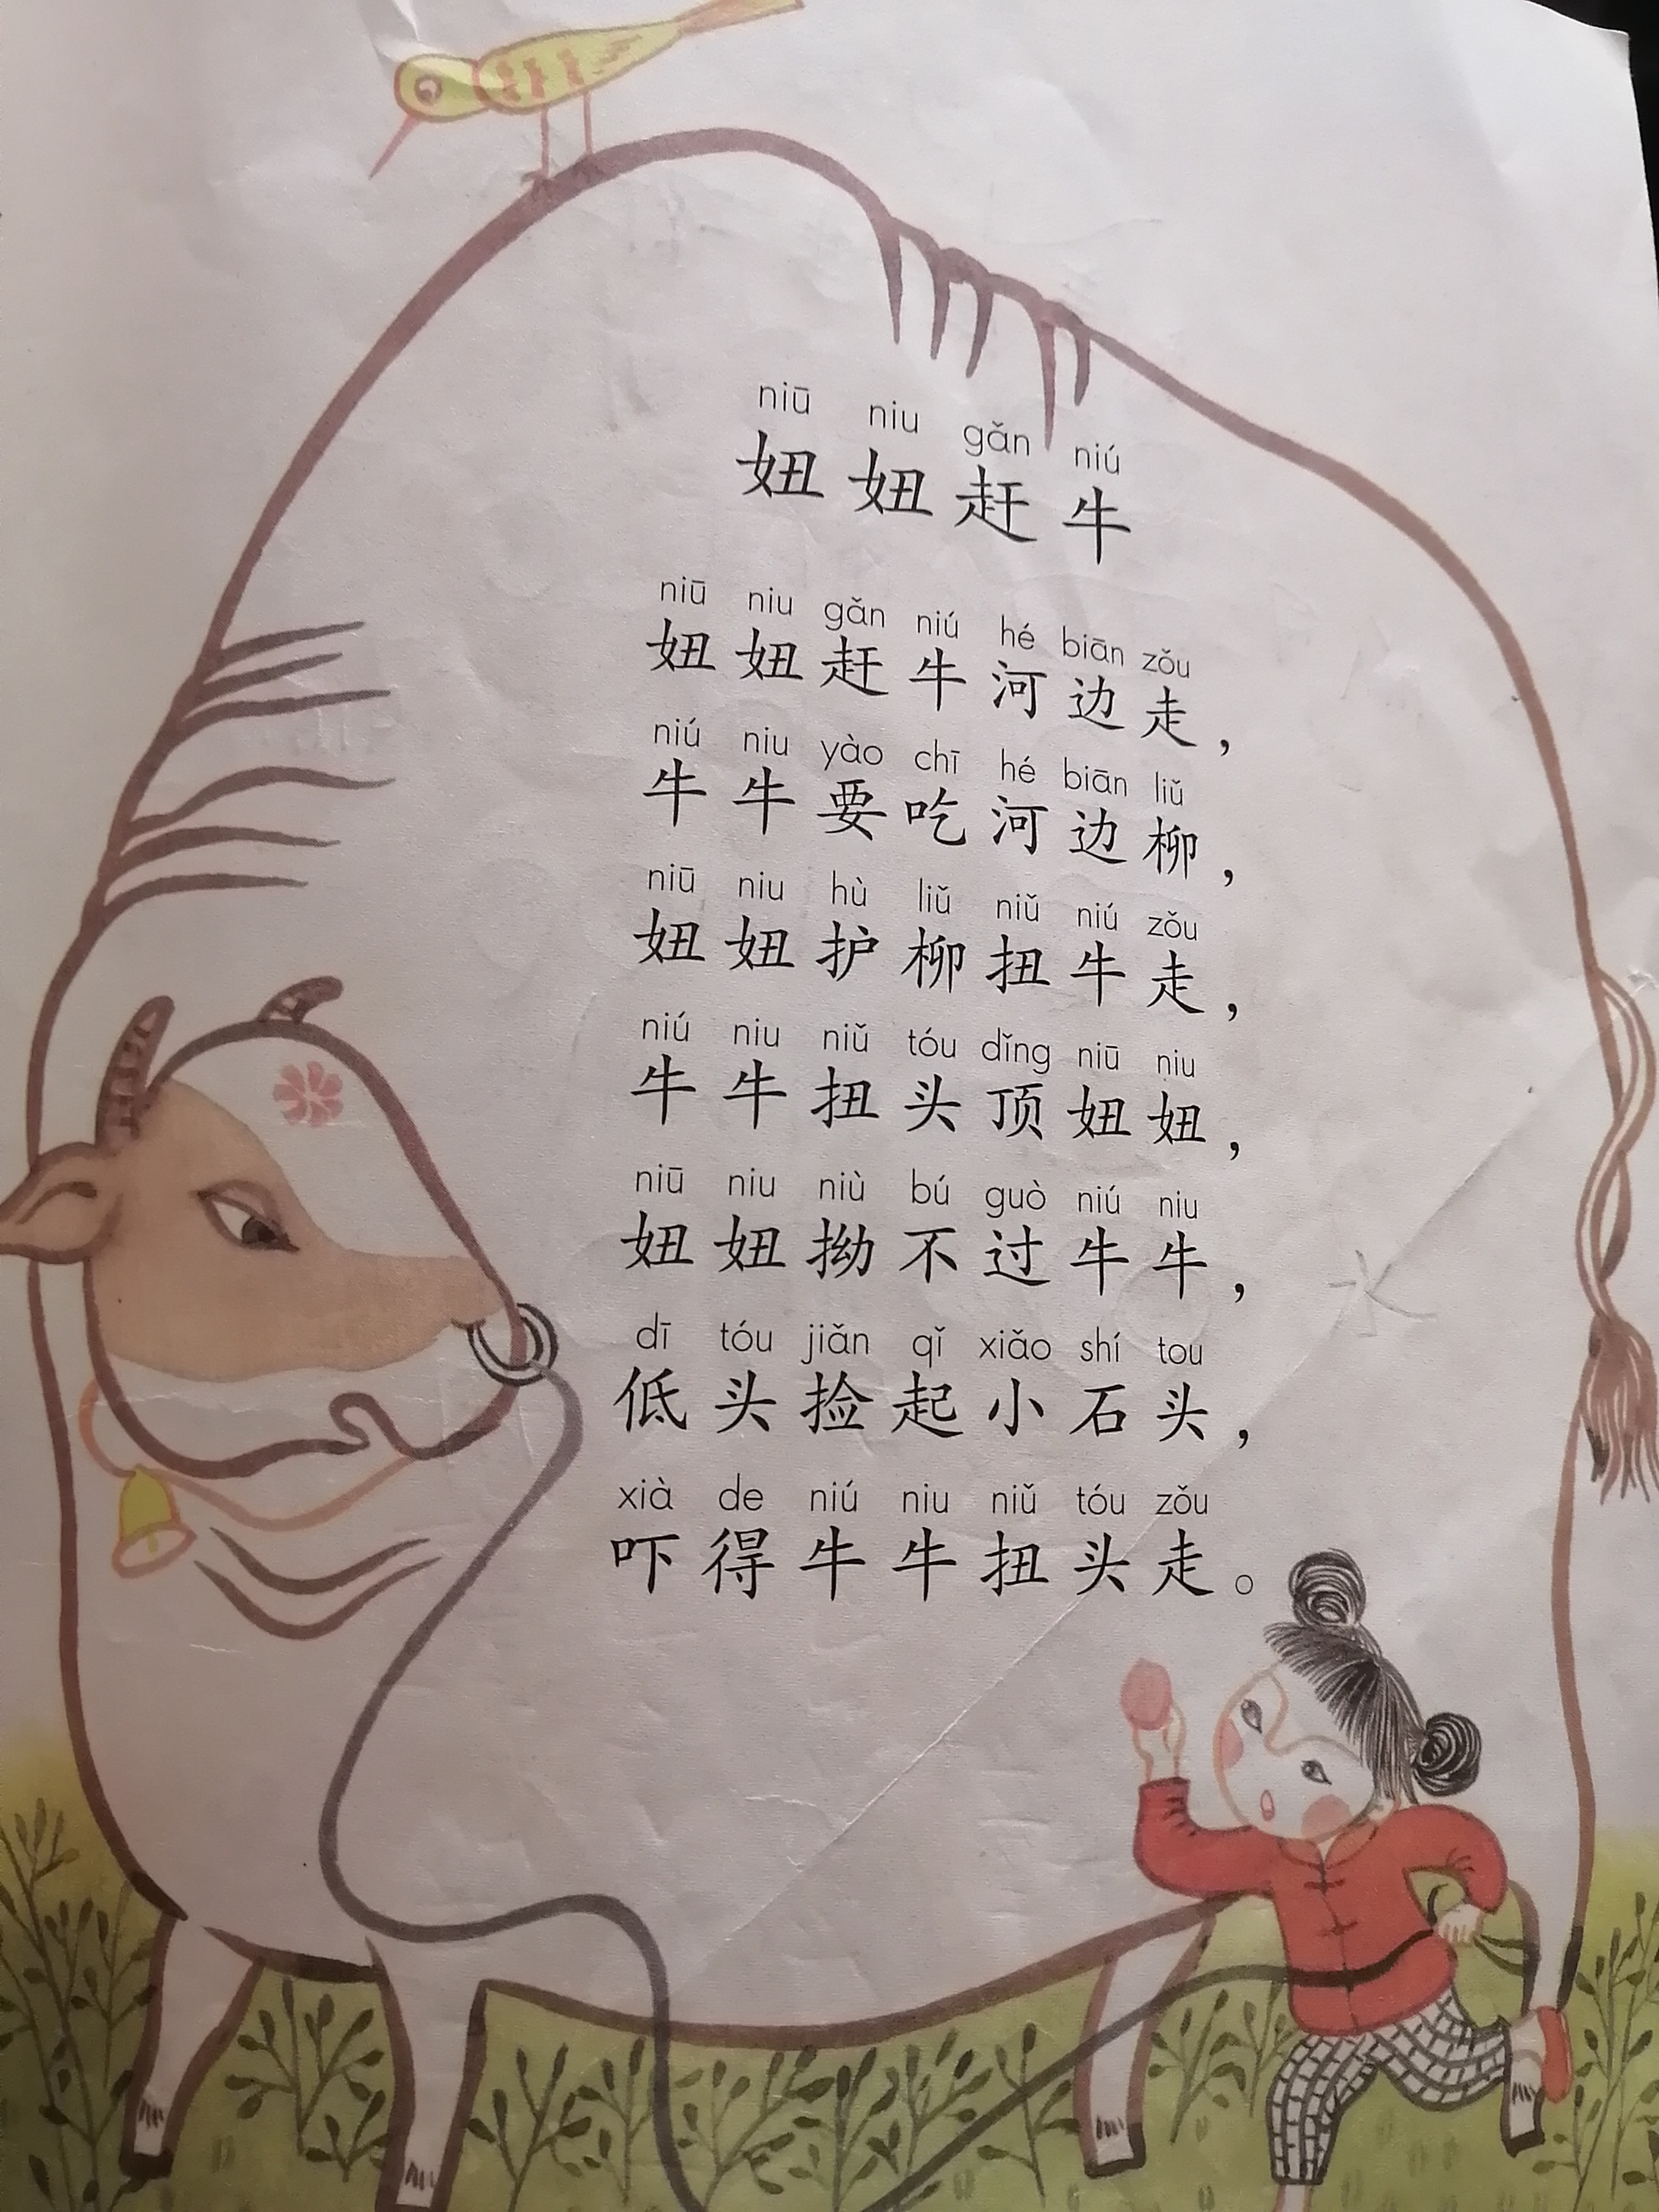 niū niu gǎn niú
妞妞赶牛
niū niu gǎn niú hé biān zǒu
妞妞赶牛河边走，
niú niu yào chī hé biān liǔ
牛牛要吃河边柳，
niū niu hù liǔ niǔ niú zǒu
妞妞护柳扭牛走，
niú niu niǔ tóu dǐng niū niu
牛牛扭头顶妞妞，
niū niu niù bú guò niú niu
妞妞拗不过牛牛，
dī tóu jiǎn qǐ xiǎo shí tou
低头捡起小石头，
xià de niú niu niǔ tóu zǒu
吓得牛牛扭头走。